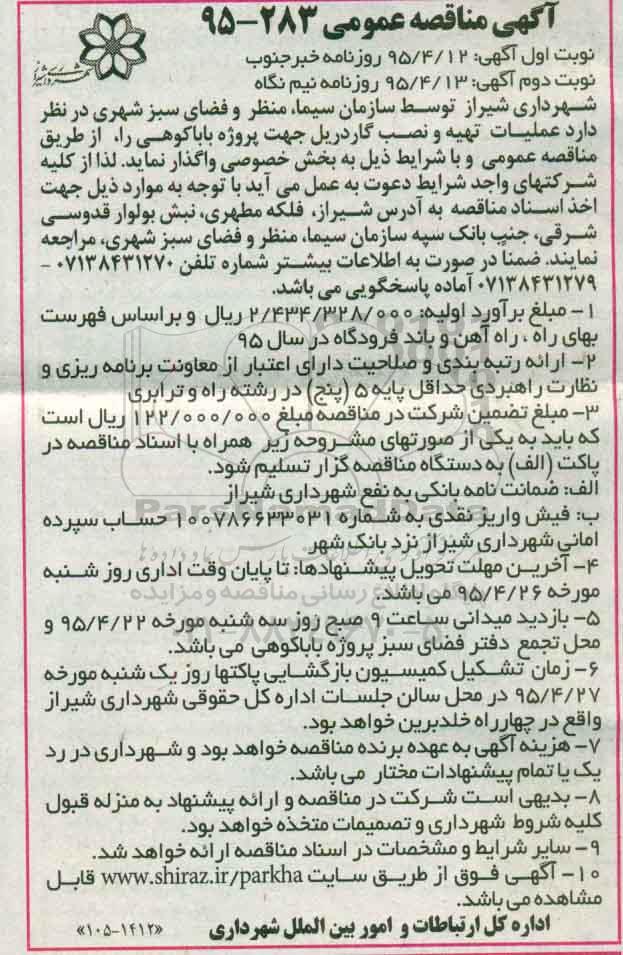 آگهی مناقصه عمومی ۲۸۳-۹۵
نوبت اول آگهی: ۹۵/۴/۱۲ روزنامه خبرجنوب
نوبت دوم آگهی: ۹۵/۴/۱۳ روزنامه نیم نگاه
شهرداری شیراز توسط سازمان سیما، منظر و فضای سبز شهری در نظر
دارد عملیات تهیه و نصب گاردریل جهت پروژه باباکوهی را، از طریق
مناقصه عمومی و با شرایط ذیل به بخش خصوصی واگذار نماید. لذا از کلیه
شرکتهای واجد شرایط دعوت به عمل می آید با توجه به موارد ذیل جهت
اخذ اسناد مناقصه به آدرس شیراز، فلکه مطهری، نبش بولوار قدوسی
شرقی، جنب بانک سپه سازمان سیما، منظر و فضای سبز شهری، مراجعه
نمایند. ضمناً در صورت به اطلاعات بیشتر شماره تلفن ۰۷۱۳۸۴۳۱۲۷۰ -
۰۷۱۳۸۴۳۱۲۷۹ آماده پاسخگویی می باشد.
۱- مبلغ برآورد اولیه: ۲/۴۳۴/۳۲۸/۰۰۰ ریال و براساس فهرست
بهای راه ، راه آهن و باند فرودگاه در سال ۹۵
۲- ارائه رتبه بندی و صلاحیت دارای اعتبار از معاونت برنامه ریزی و
نظارت راهبردی حداقل پایه ۵ (پنج) در رشته راه و ترابری
۳- مبلغ تضمین شرکت در مناقصه مبلغ ۱۲۲/۰۰۰/۰۰۰ ریال است
که باید به یکی از صورتهای مشروحه زیر همراه با اسناد مناقصه در
پاکت (الف) به دستگاه مناقصه گزار تسلیم شود.
الف: ضمانت نامه بانکی به نفع شهرداری شیراز
ب: فیش واریز نقدی به شماره ۱۰۰۷۸۶۶۳۳۰۳۱ حساب سپرده
امانی شهرداری شیراز نزد بانک شهر
۴- آخرین مهلت تحویل پیشنهادها: تا پایان وقت اداری روز شنبه
مورخه ۹۵/۴/۲۶ می باشد.
۵- بازدید میدانی ساعت ۹ صبح روز سه شنبه مورخه ۹۵/۴/۲۲ و
محل تجمع دفتر فضای سبز پروژه باباکوهی می باشد.
۶- زمان تشکیل کمیسیون بازگشایی پاکتها روز یک شنبه مورخه
۹۵/۴/۲۷ در محل سالن جلسات اداره کل حقوقی شهرداری شیراز
واقع در چهارراه خلدبرین خواهد بود.
۷- هزینه آگهی به عهده برنده مناقصه خواهد بود و شهرداری در رد
یک یا تمام پیشنهادات مختار می باشد.
۸- بدیهی است شرکت در مناقصه و ارائه پیشنهاد به منزله قبول
کلیه شروط شهرداری و تصمیمات متخذه خواهد بود.
۹- سایر شرایط و مشخصات در اسناد مناقصه ارائه خواهد شد.
۱۰- آگهی فوق از طریق سایت www.shiraz.ir/parkha قابل
مشاهده می باشد.
اداره کل ارتباطات و امور بین الملل شهرداری «۱۰۵-۱۴۱۲»
ParsNamadData